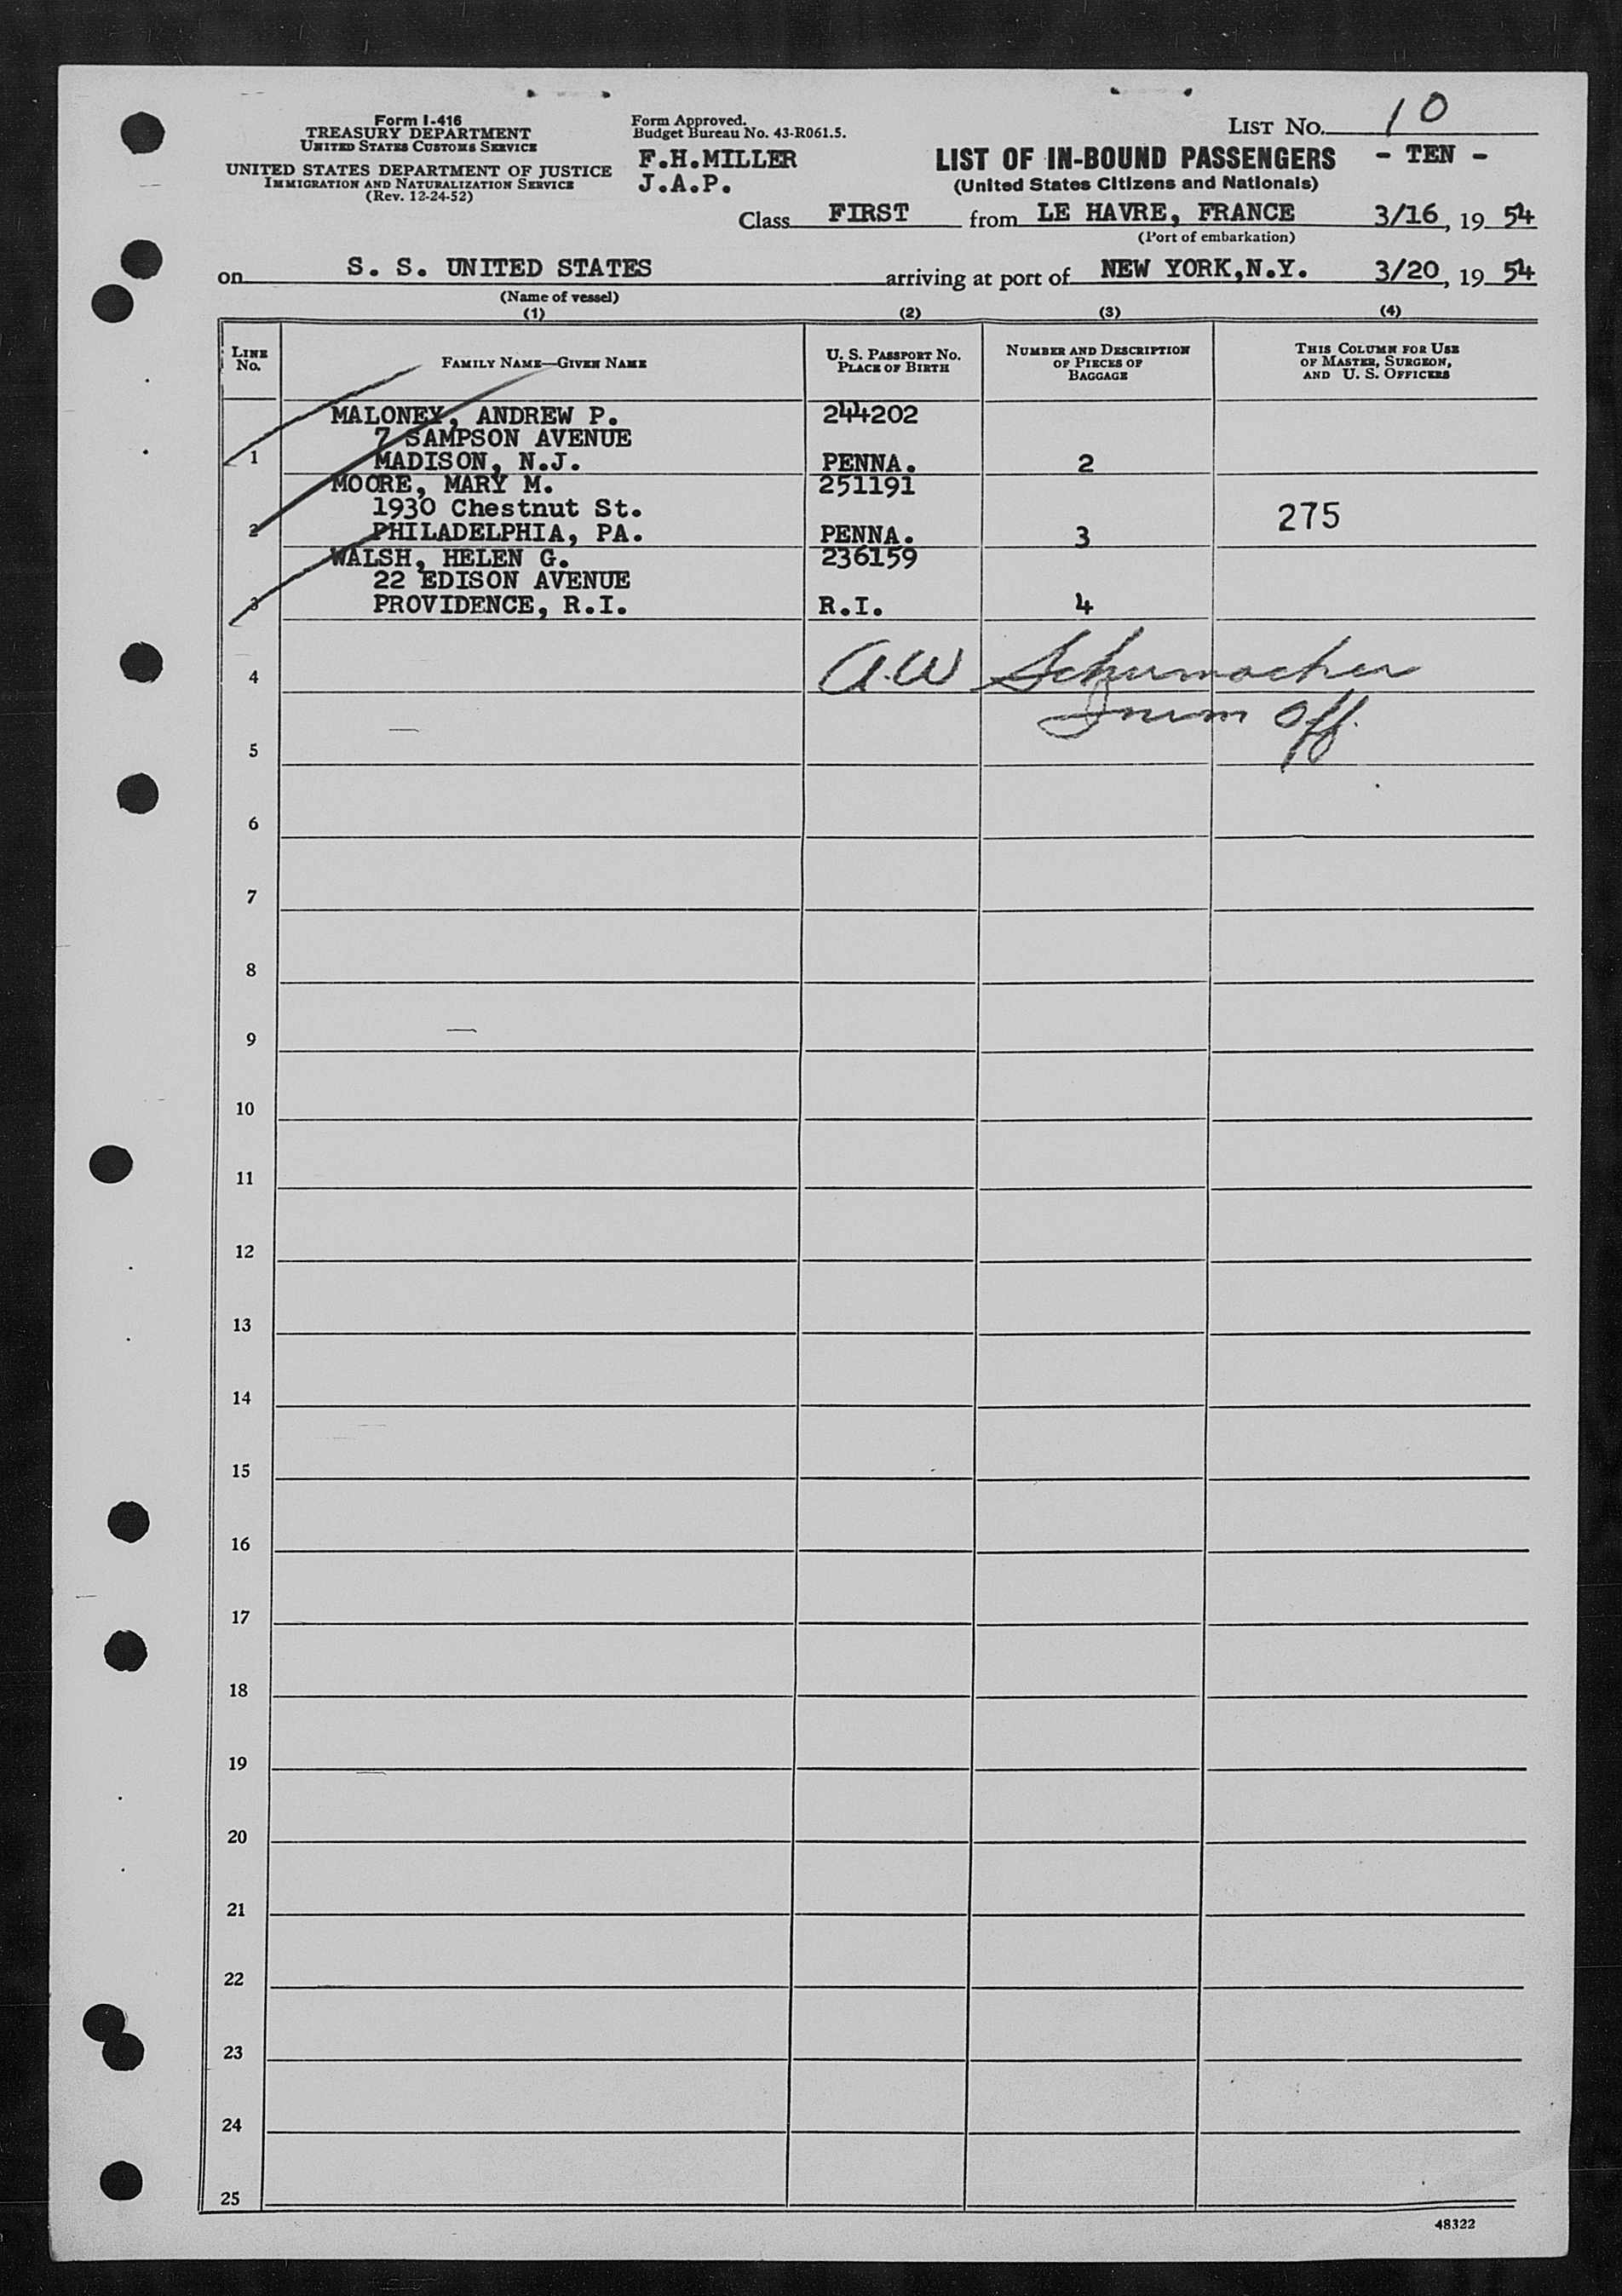 Form I-416
TREASURY DEPARTMENT
UNITED STATES CUSTOMS SERVICE
UNITED STATES DEPARTMENT OF JUSTICE
IMMIGRATION AND NATURALIZATION SERVICE
(Rev. 12-24-52)
Form Approved.
Budget Bureau No. 43-R061.5.
F.H.MILLER
J.A.P.
LIST NO. 10
LIST OF IN-BOUND PASSENGERS - TEN -
(United States Citizens and Nationals)
Class FIRST from LE HAVRE, FRANCE 3/16, 19 54
(Port of embarkation)
on S. S. UNITED STATES arriving at port of NEW YORK,N.Y. 3/20, 19 54
(Name of vessel)
(1) (2) (3) (4)
LINE NO.
FAMILY NAME—GIVEN NAME
U. S. PASSPORT NO.
PLACE OF BIRTH
NUMBER AND DESCRIPTION
OF PIECES OF
BAGGAGE
THIS COLUMN FOR USE
OF MASTER, SURGEON,
AND U. S. OFFICERS
MALONEY, ANDREW P. 244202
7 SAMPSON AVENUE
1 MADISON, N.J. PENNA. 2
MOORE, MARY M. 251191
1930 Chestnut St. 275
2 PHILADELPHIA, PA. PENNA. 3
WALSH, HELEN G. 236159
22 EDISON AVENUE
3 PROVIDENCE, R.I. R.I. 4
4 A.W Schumacher
Imm Off.
5
6
7
8
9
10
11
12
13
14
15
16
17
18
19
20
21
22
23
24
25
48322